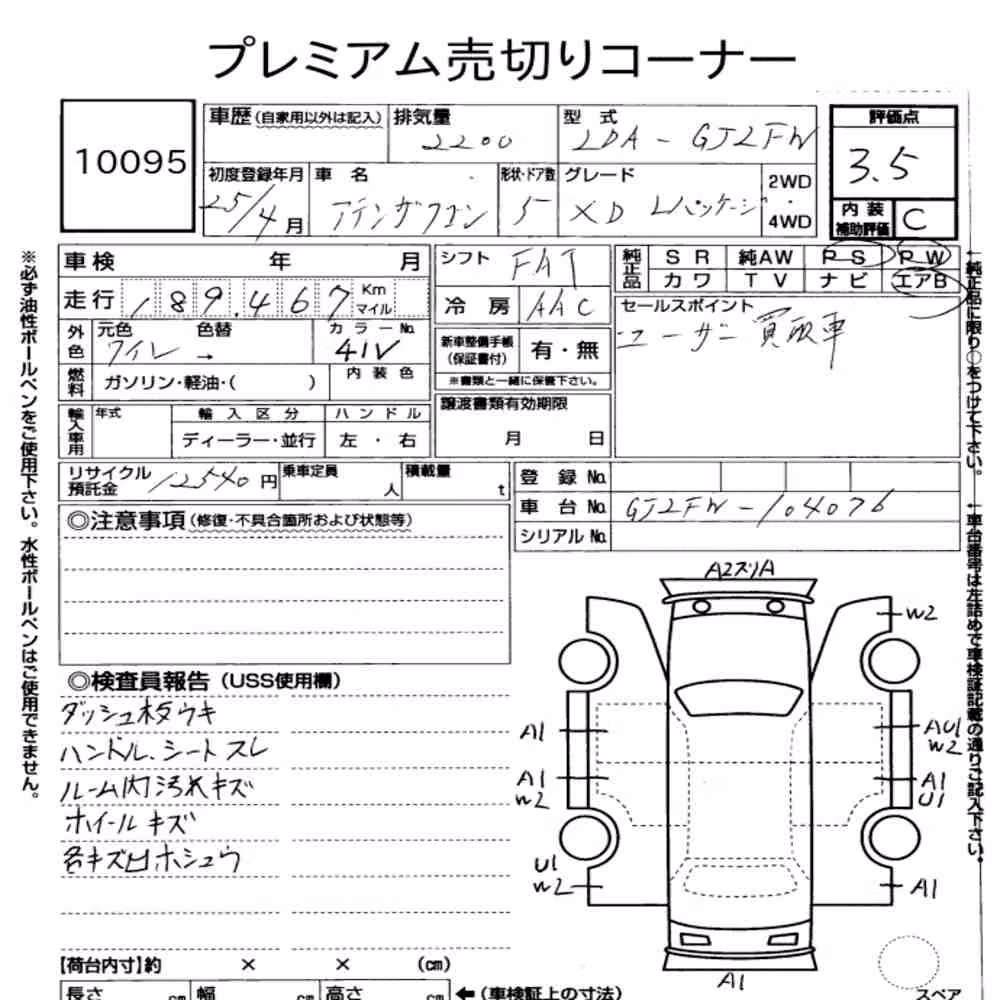 プレミアム売切りコーナー
10095
車歴(自家用以外は記入)
排気量
2200
型式
LDA-GJ2FW
評価点
3.5
内装
補助評価
C
初度登録年月
25/4月
車名
アテンザワゴン
形状・ドア数
5
グレード
XD Lパッケージ
2WD
・
4WD
車検 年 月
走行 189.467 Km
マイル
外色
元色 ワイン
色替 →
カラーNo.
41V
燃料
ガソリン・軽油・( )
内装色
輸入車用
年式
輸入区分
ディーラー・並行
ハンドル
左・右
シフト FAT
冷房 AAC
新車整備手帳
(保証書付)
有・無
※書類と一緒に保管下さい。
譲渡書類有効期限
月 日
純正品
SR 純AW PS PW
カワ TV ナビ エアB
セールスポイント
ユーザー買取車
リサイクル
預託金
12540円
乗車定員
人
積載量
t
登録No.
車台No. GJ2FW-104076
シリアルNo.
◎注意事項(修復・不具合箇所および状態等)
◎検査員報告(USS使用欄)
ダッシュ板ウキ
ハンドル、シートスレ
ルーム内汚れキズ
ホイールキズ
各キズ凹ホシュウ
A2スリA
W2
A1
AU1
W2
A1
W2
A1
U1
U1
W2
A1
A1
スペア
【荷台内寸】約 × × (cm)
長さ cm 幅 cm 高さ cm ←(車検証上の寸法)
※必ず油性ボールペンをご使用下さい。水性ボールペンはご使用できません。
←純正品に限り○をつけて下さい。
←車台番号は左詰めで車検証記載の通りご記入下さい。